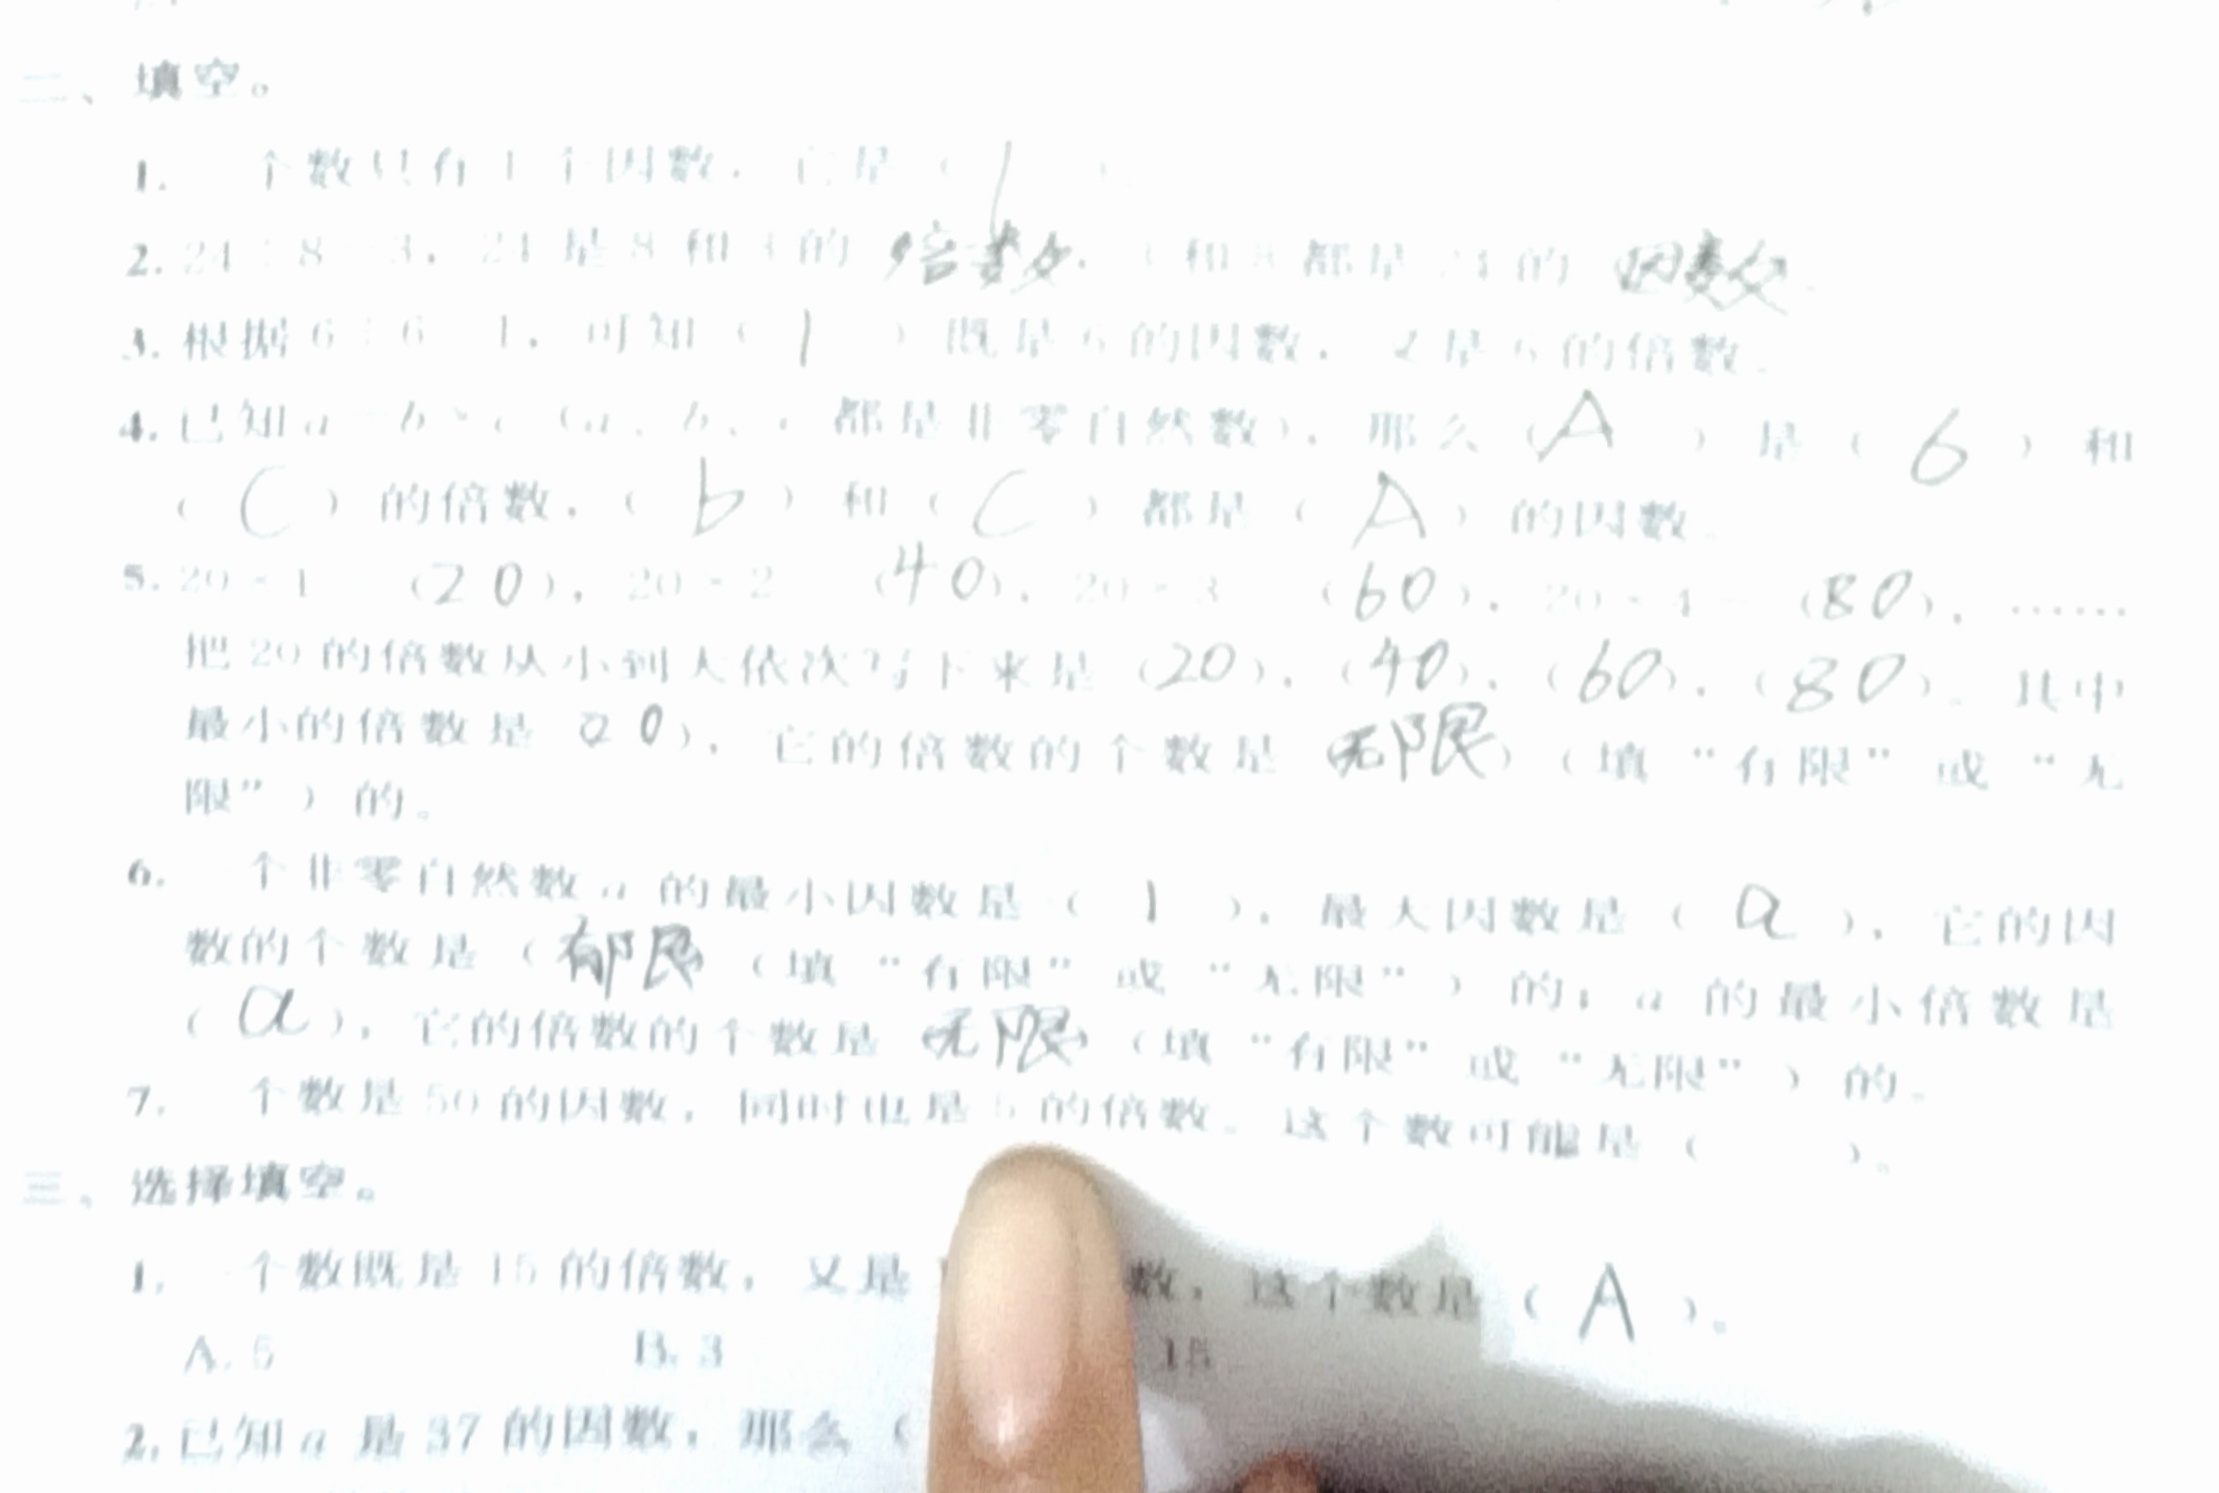 二、填空。
1. 一个数只有1个因数，它是（ 1 ）。
2. 24÷8=3，24是8和3的 倍数，3和8都是24的 因数。
3. 根据6÷6=1，可知（ 1 ）既是6的因数，又是6的倍数。
4. 已知a=b×c（a、b、c都是非零自然数），那么（ A ）是（ b ）和
（ C ）的倍数，（ b ）和（ C ）都是（ A ）的因数。
5. 20×1=（20），20×2=（40），20×3=（60），20×4=（80），……
把20的倍数从小到大依次写下来是（20），（40），（60），（80）。其中
最小的倍数是 20），它的倍数的个数是 无限）（填“有限”或“无
限”）的。
6. 一个非零自然数a的最小因数是（ 1 ），最大因数是（ a ），它的因
数的个数是（有限（填“有限”或“无限”）的；a的最小倍数是
（ a ），它的倍数的个数是 无限（填“有限”或“无限”）的。
7. 一个数是50的因数，同时也是5的倍数。这个数可能是（ ）。
三、选择填空。
1. 一个数既是15的倍数，又是 数，这个数是（ A ）。
A. 5 B. 3 15
2. 已知a是37的因数，那么（